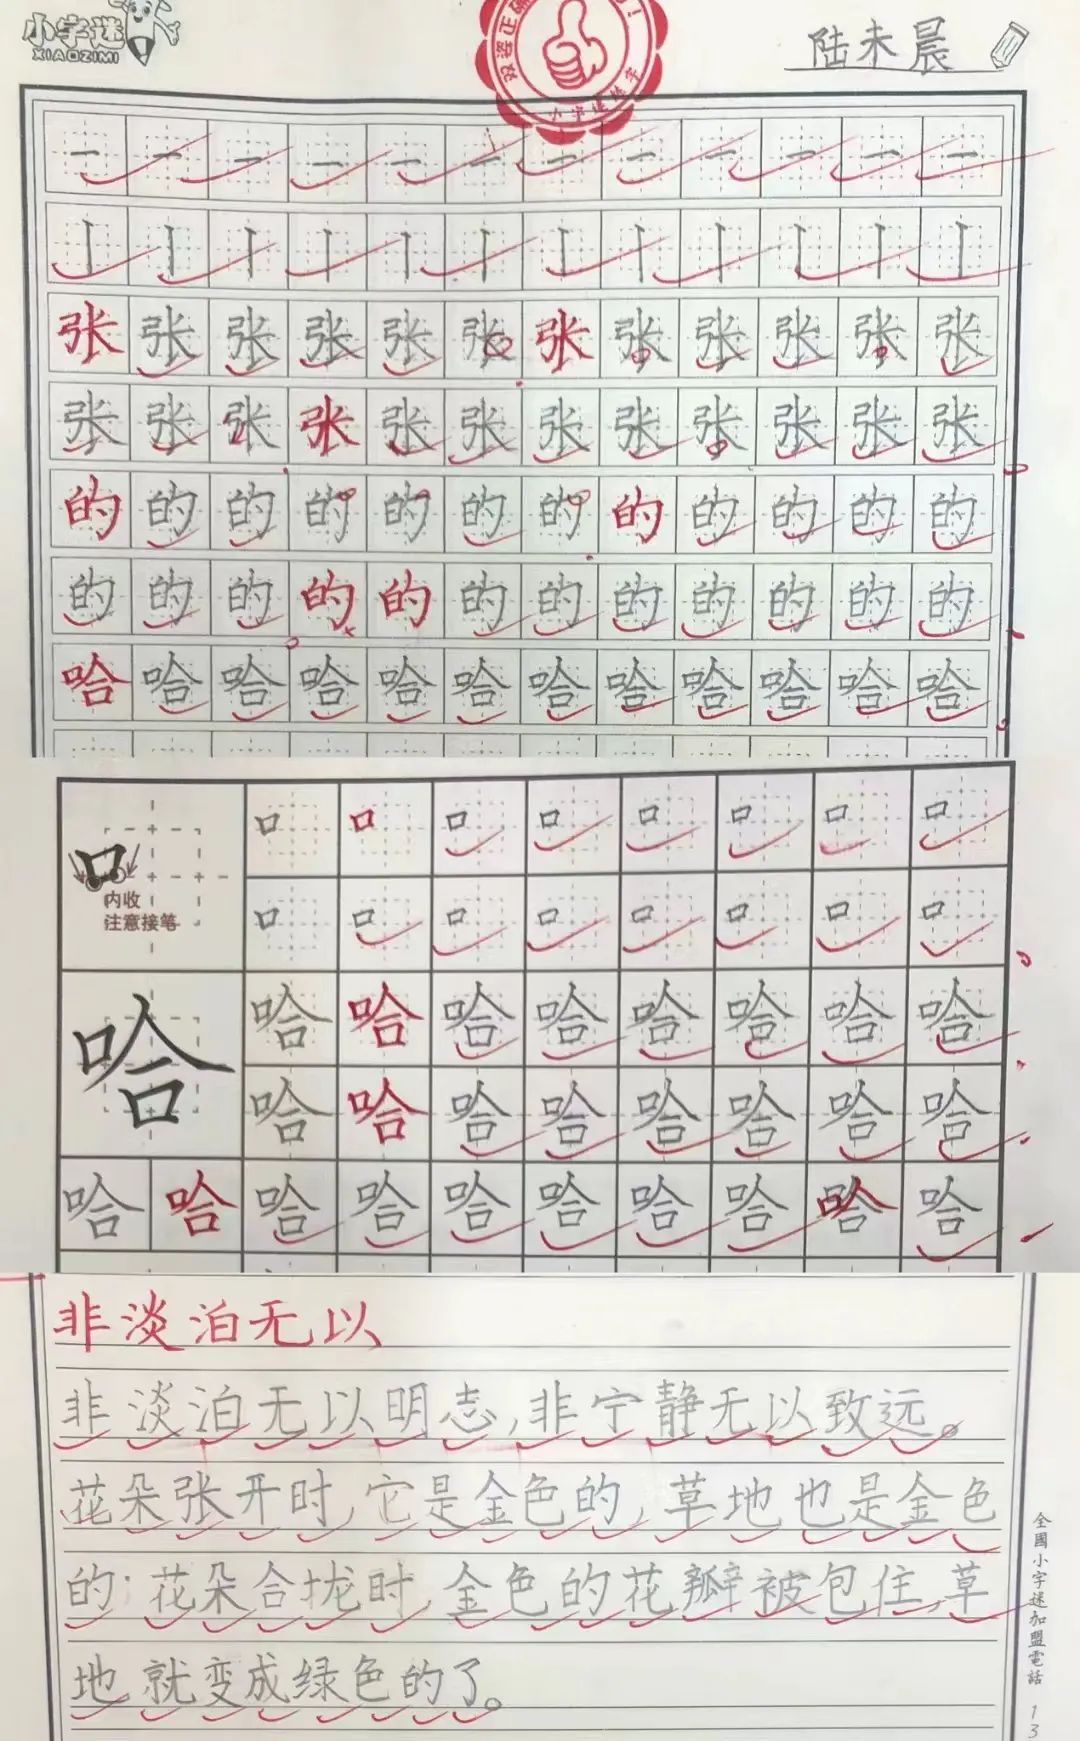 小字迷
XIAOZIMI
双姿正确
！
小字迷练字
陆未晨
一 一 一 一 一 一 一 一 一 一 一 一
丨 丨 丨 丨 丨 丨 丨 丨 丨 丨 丨 丨
张 张 张 张 张 张 张 张 张 张 张 张
张 张 张 张 张 张 张 张 张 张 张 张
的 的 的 的 的 的 的 的 的 的 的 的
的 的 的 的 的 的 的 的 的 的 的 的
哈 哈 哈 哈 哈 哈 哈 哈 哈 哈 哈 哈
口 口 口 口 口 口 口 口 口
内收
注意接笔
口 口 口 口 口 口 口 口
哈 哈 哈 哈 哈 哈 哈 哈 哈
哈 哈 哈 哈 哈 哈 哈 哈
哈 哈 哈 哈 哈 哈 哈 哈 哈 哈
非淡泊无以
非淡泊无以明志,非宁静无以致远。
花朵张开时,它是金色的,草地也是金色
的;花朵合拢时,金色的花瓣被包住,草
地就变成绿色的了。
全國小字迷加盟電話 13